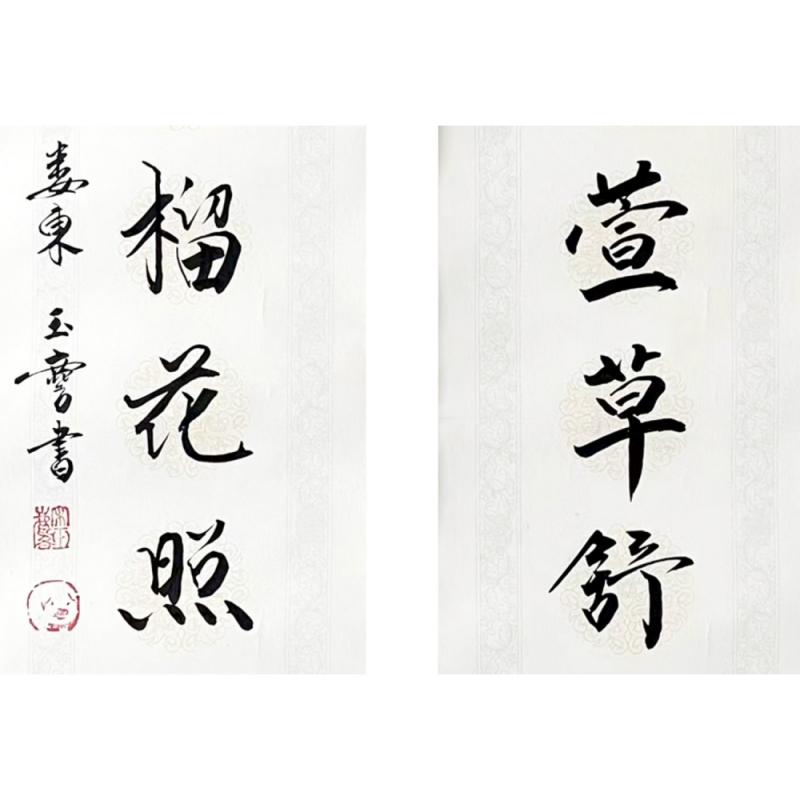 萱草舒
榴花照
娄東 玉霄書